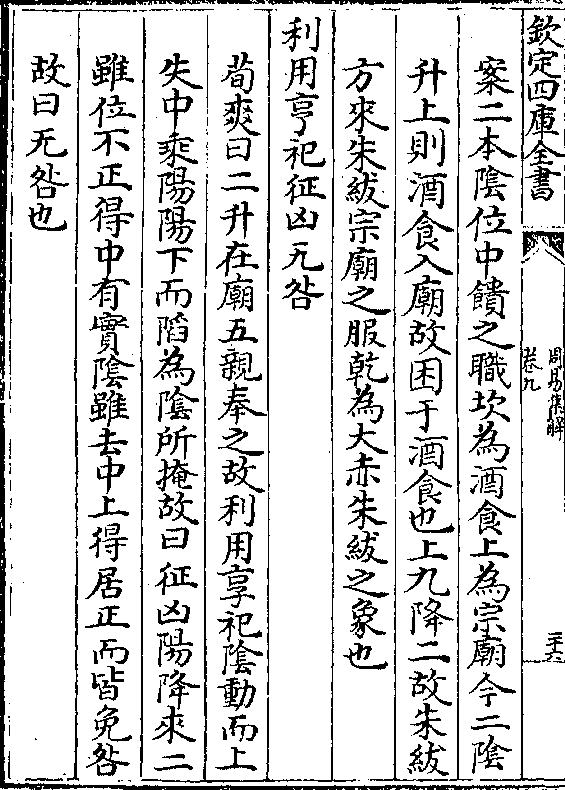 欽定四庫全書
周易集解
卷九
三十六
案二本陰位中饋之職坎為酒食上為宗廟今二陰
升上則酒食入廟故困于酒食也上九降二故朱紱
方來朱紱宗廟之服乾為大赤朱紱之象也
利用亨祀征凶无咎
荀爽曰二升在廟五親奉之故利用享祀陰動而上
失中乘陽陽下而䧟為陰所掩故曰征凶陽降來二
雖位不正得中有實陰雖去中上得居正而皆免咎
故曰无咎也